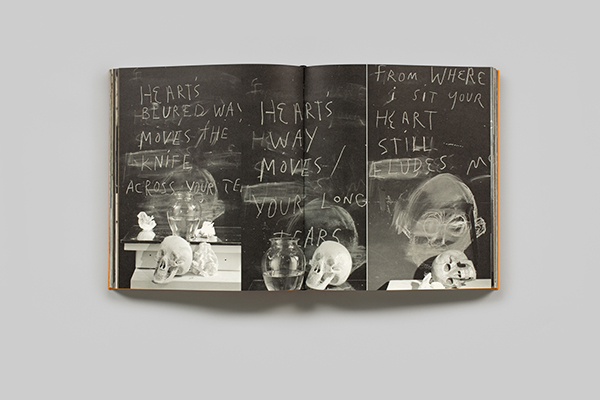 HEART'S
BEURED WAY
MOVES/THE
KNIFE
ACROSS YOUR TE
HEARTS
WAY
MOVES/
YOUR LONG
TEARS
FROM WHERE
i SIT YOUR
HEART
STILL
ELUDES ME